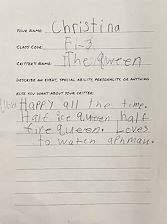 YOUR NAME: Christina
CLASS CODE: F1-3
CRITTER'S NAME: The qween
DESCRIBE AN EVENT, SPECIAL ABILITY, PERSONALITY, OR ANYTHING
ELSE YOU WANT ABOUT YOUR CRITTER:
Happy all the time.
Half ice queen half
fire queen. Loves
to watch aphmau.